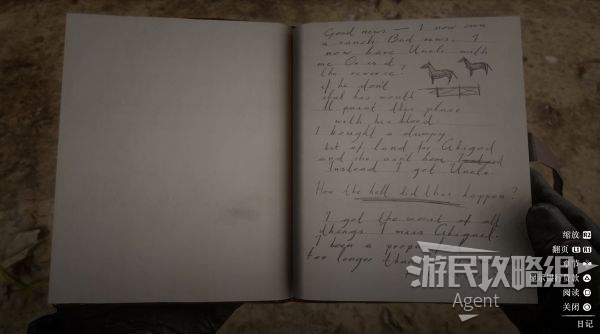 Good news — I now own
a ranch. Bad news, I
now have Uncle with
me. Or is it
the reverse?
if he don't
shut his mouth
I'll paint this place
with his blood.
I bought a dumpy
bit of land for Abigail
and she ain't here
Instead I got Uncle.
How the hell did this happen?
I got the worst of all
things I miss Abigail.
I been a
too longer
缩放 R2
翻页 L1 R1
阅读
关闭
日记
游民攻略组
Agent